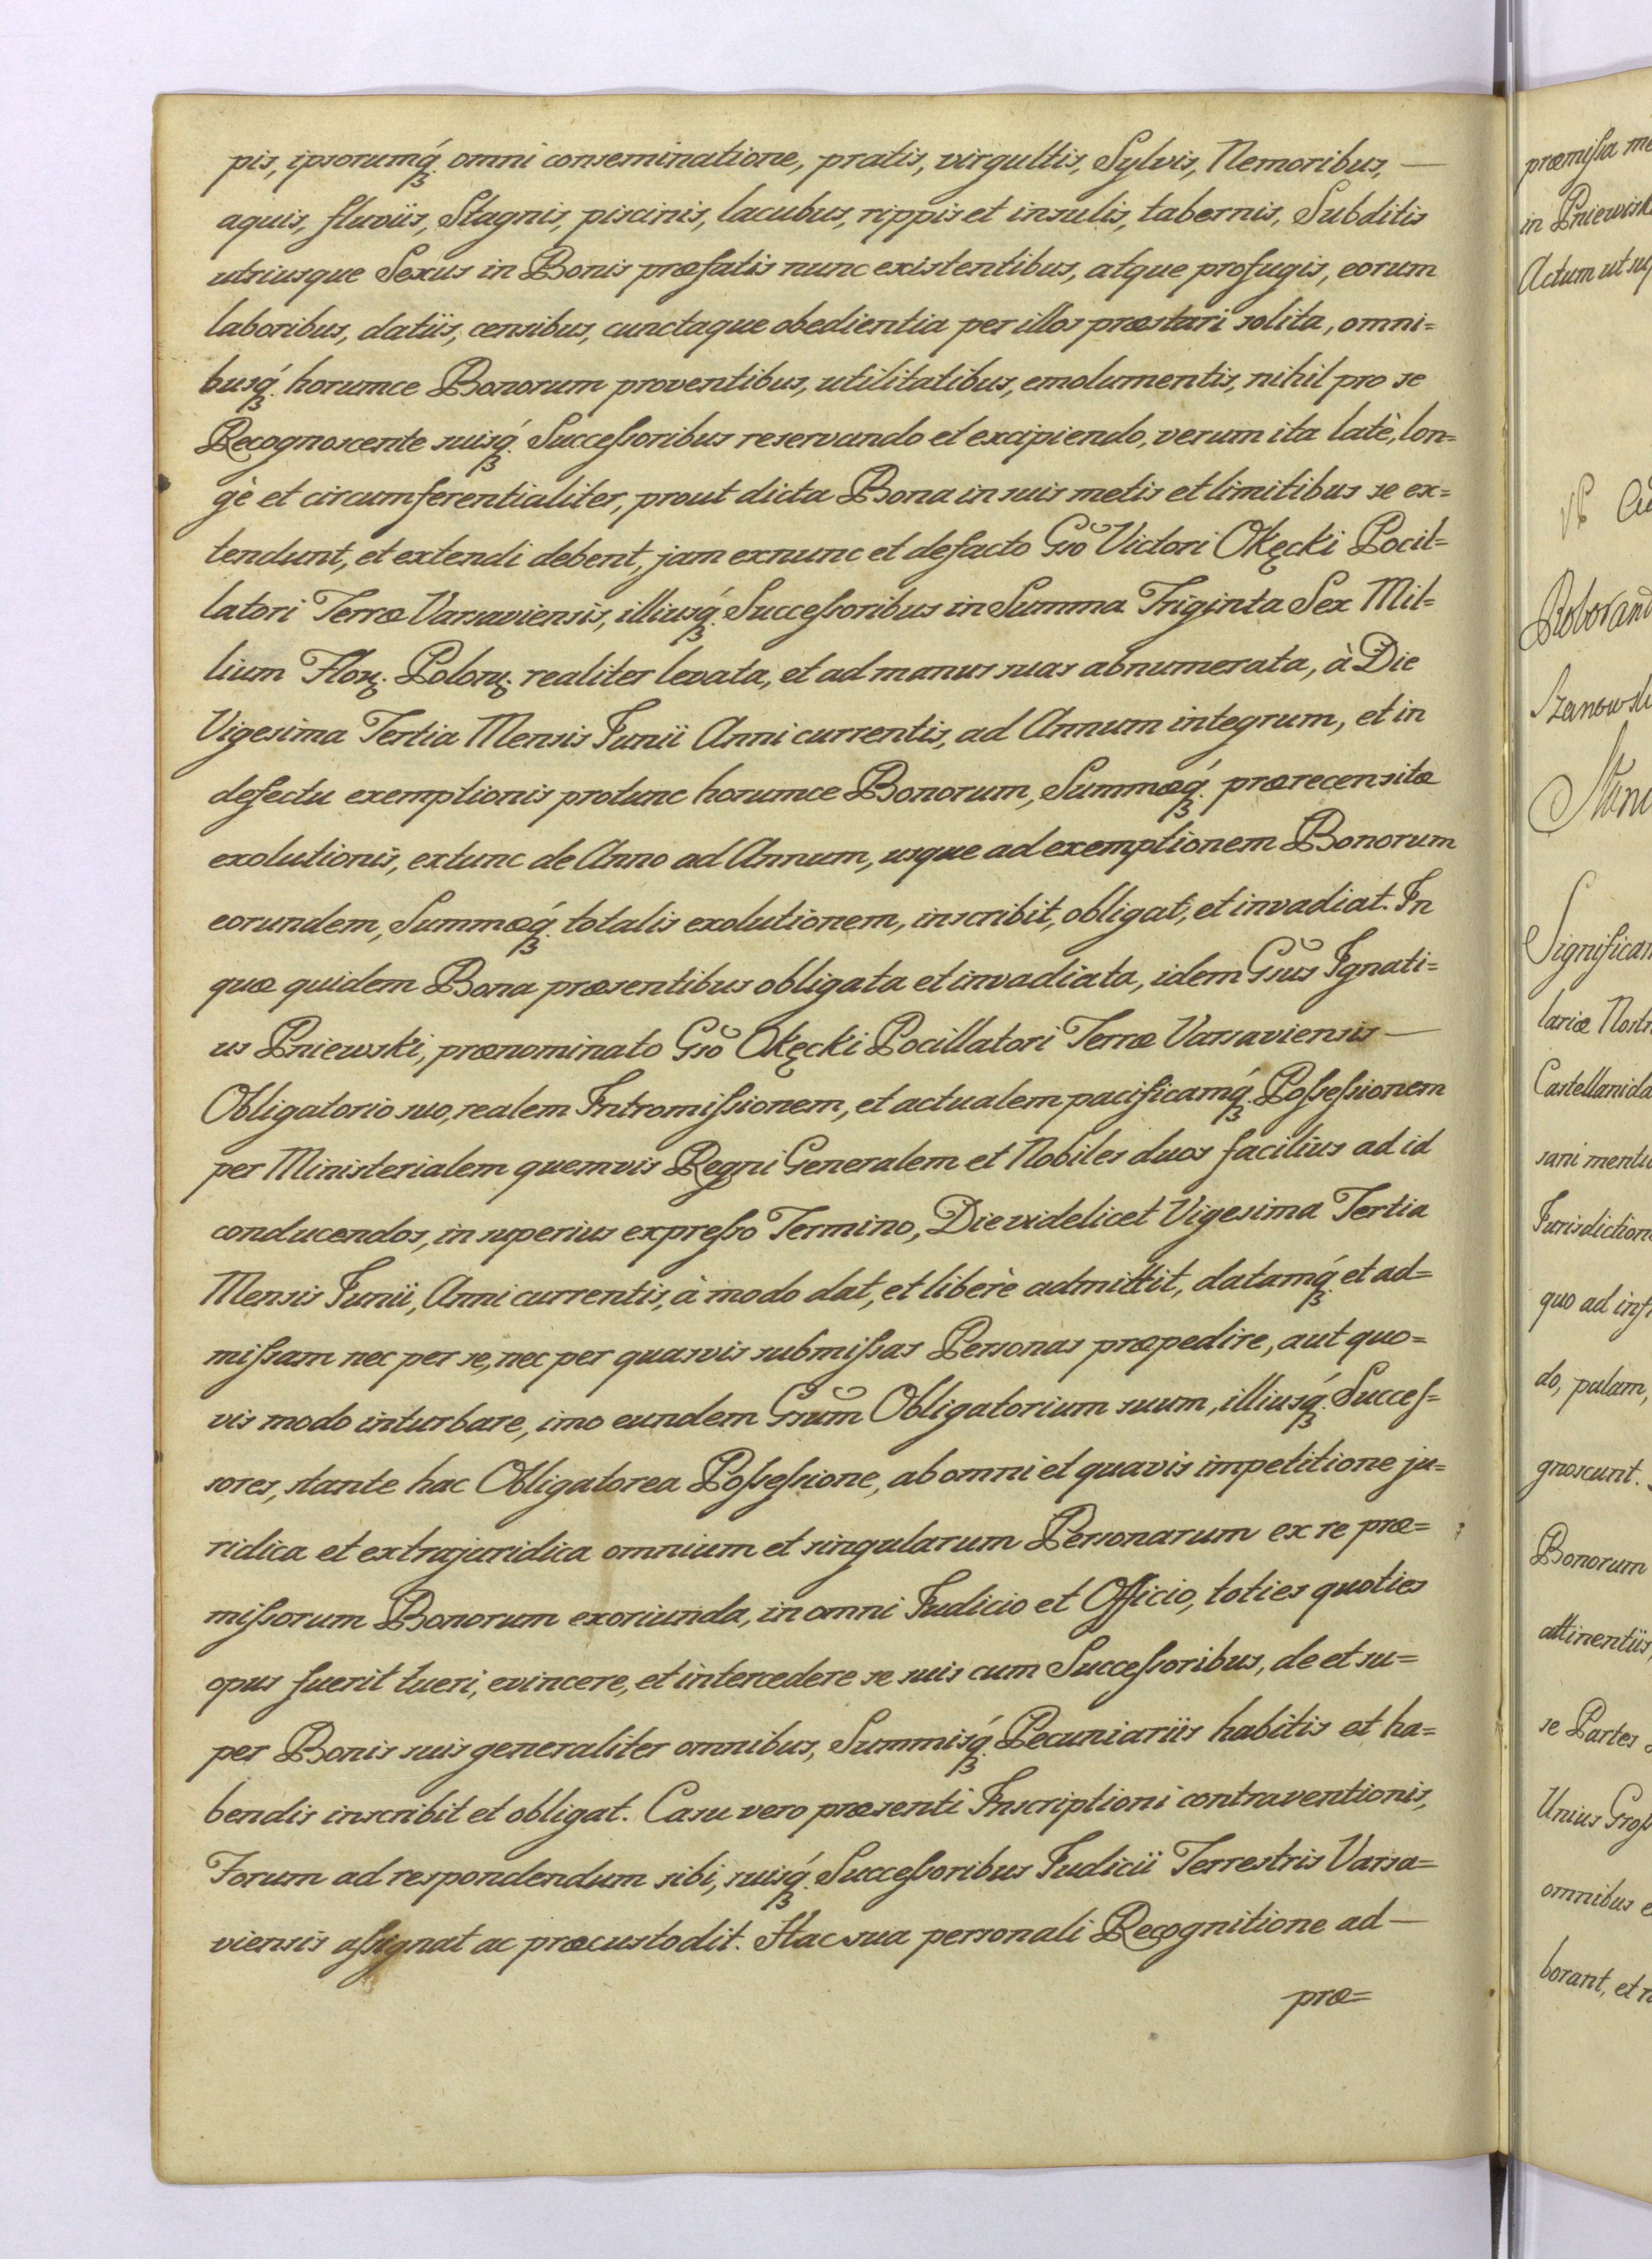 pis, ipsorumq́ꝫ omni conseminatione, pratis, virgultis, Sylvis, Nemoribus, —
aquis, fluviis, Stagnis, piscinis, lacubus, rippis et insulis, tabernis, Subditis
utriusque Sexus in Bonis præfatis nunc existentibus, atque profugis, eorum
laboribus, datiis, censibus, cunctaque obedientia per illos præstari solita, omni=
busq́ꝫ horumce Bonorum proventibus, utilitatibus, emolumentis, nihil pro se
Recognoscente suisq́ꝫ Succeſsoribus reservando et excipiendo, verum ita latè, lon=
gè et circumferentialiter, prout dicta Bona in suis metis et limitibus se ex=
tendunt, et extendi debent, jam exnunc et defacto Gso Victori Okęcki Pocil=
latori Terræ Varsaviensis, illiusq́ꝫ Succeſsoribus in Summa Triginta Sex Mil=
lium Floꝝ. Poloꝝ. realiter levata, et ad manus suas abnumerata, à Die
Vigesima Tertia Mensis Junii Anni currentis, ad Annum integrum, et in
defectu exemptionis protunc horumce Bonorum, Summæq́ꝫ prærecensitæ
exolutionis, extunc de Anno ad Annum, usque ad exemptionem Bonorum
eorundem, Summæq́ꝫ totalis exolutionem, inscribit, obligat, et invadiat. In
quæ quidem Bona præsentibus obligata et invadiata, idem Gsus Ignati=
us Pniewski, prænominato Gso Okęcki Pocillatori Terræ Varsaviensis —
Obligatorio suo, realem Intromiſsionem, et actualem pacificamq́ꝫ Poſseſsionem
per Ministerialem quemvis Regni Generalem et Nobiles duos facilius ad id
conducendos, in superius expreſso Termino, Die videlicet Vigesima Tertia
Mensis Junii, Anni currentis, à modo dat, et liberè admittit, datamq́ꝫ et ad=
miſsam nec per se, nec per quasvis submiſsas Personas præpedire, aut quo=
vis modo inturbare, imo eundem Gsum Obligatorium suum, illiusq́ꝫ Succeſ=
sores, stante hac Obligatorea Poſseſsione, ab omni et quavis impetitione ju=
ridica et extrajuridica omnium et singularum Personarum ex re præ=
miſsorum Bonorum exoriunda, in omni Judicio et Officio, toties quoties
opus fuerit tueri, evincere, et intercedere se suis cum Succeſsoribus, de et su=
per Bonis suis generaliter omnibus, Summisq́ꝫ Pecuniariis habitis et ha=
bendis inscribit et obligat. Casu vero præsenti Inscriptioni contraventionis,
Forum ad respondendum sibi, suisq́ꝫ Succeſsoribus Judicii Terrestris Varsa=
viensis aſsignat ac præcustodit. Hac sua personali Recognitione ad —
præ=
præmiſsa me
in Pniewisk
Actum ut su
Roborand
Szanowsk
Significan
lariæ Nostr
Castellanida
sani mentis
Jurisdiction
quo ad inf
do, palam,
gnoscunt.
Bonorum
attinentiis,
se Partes
Unius Groſs
omnibus e
borant, et r